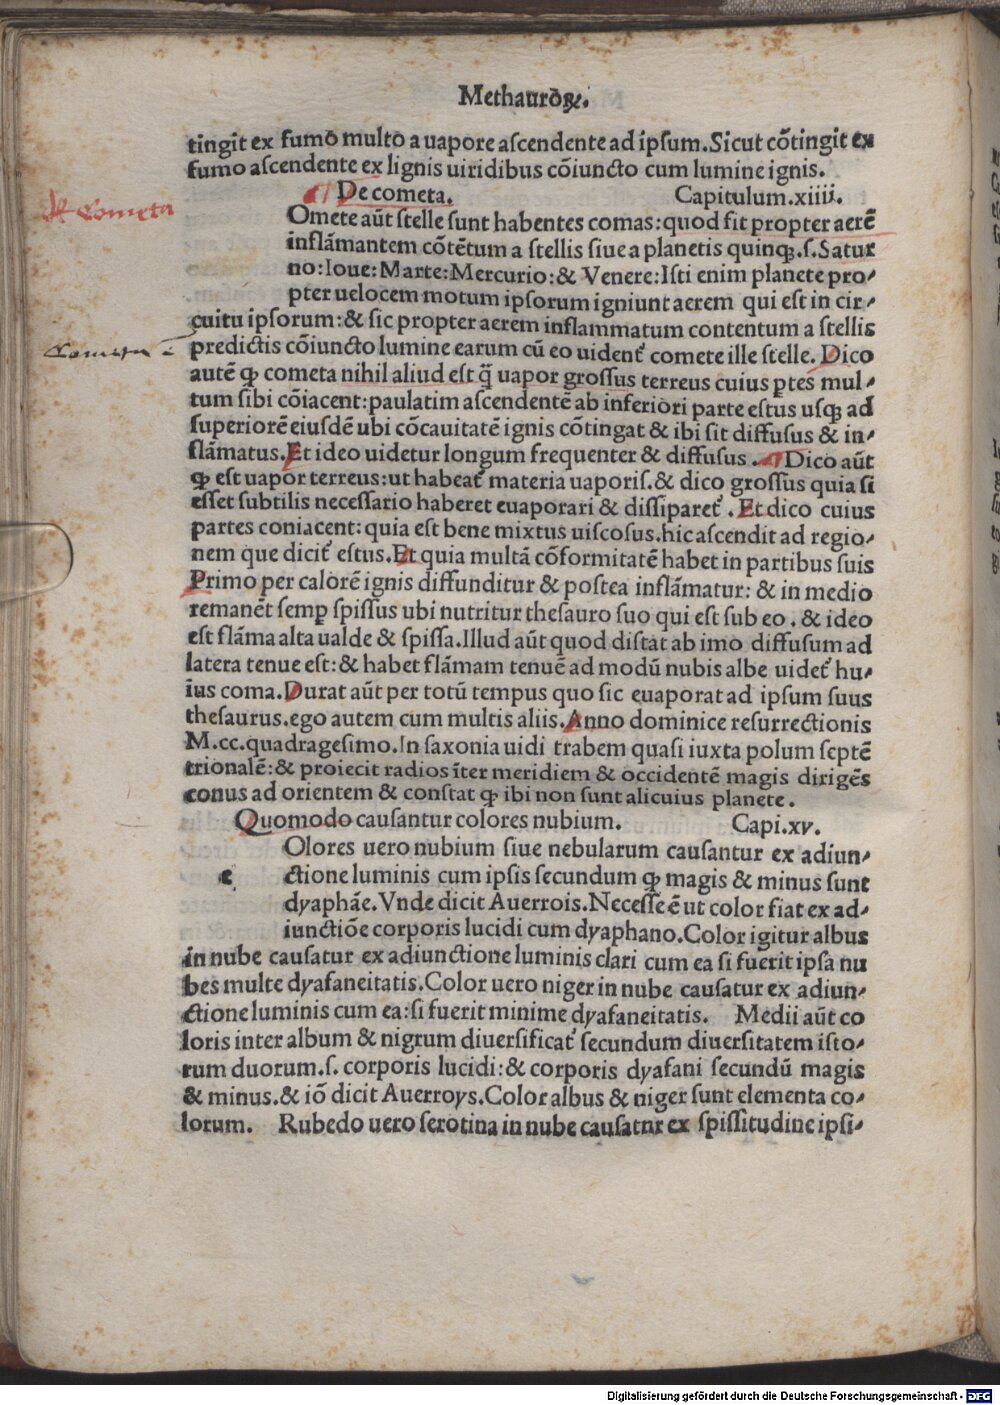 Methaurōꝝ.
tingit ex fumo multo a uapore ascendente ad ipsum. Sicut cōtingit ex
fumo ascendente ex lignis uiridibus cōiuncto cum lumine ignis.
De cometa. Capitulum.xiiii.
de Cometa
Omete aūt stelle sunt habentes comas: quod fit propter aerē
inflāmantem cōtētum a stellis siue a planetis quinqꝫ.s. Satur
no: Ioue: Marte: Mercurio: & Venere: Isti enim planete pro⸗
pter uelocem motum ipsorum igniunt aerem qui est in cir⸗
cuitu ipsorum: & sic propter aerem inflammatum contentum a stellis
Cometa
predictis cōiuncto lumine earum cū eo uident᷑ comete ille stelle. Dico
autē ꝙ cometa nihil aliud est q̄ uapor grossus terreus cuius ꝑtes mul⸗
tum sibi cōiacent: paulatim ascendentē ab inferiori parte estus usqꝫ ad
superiorē eiusdē ubi cōcauitatē ignis cōtingat & ibi sit diffusus & in⸗
flāmatus. Et ideo uidetur longum frequenter & diffusus. Dico aūt
ꝙ est uapor terreus: ut habeat᷑ materia uaporis. & dico grossus quia si
esset subtilis necessario haberet euaporari & dissiparet᷑. Et dico cuius
partes coniacent: quia est bene mixtus uiscosus. hic ascendit ad regio⸗
nem que dicit᷑ estus. Et quia multā cōformitatē habet in partibus suis
Primo per calorē ignis diffunditur & postea inflāmatur: & in medio
remanēt semꝑ spissus ubi nutritur thesauro suo qui est sub eo. & ideo
est flāma alta ualde & spissa. Illud aūt quod distat ab imo diffusum ad
latera tenue est: & habet flāmam tenuē ad modū nubis albe uidet᷑ hu⸗
ius coma. Durat aūt per totū tempus quo sic euaporat ad ipsum suus
thesaurus. ego autem cum multis aliis. Anno dominice resurrectionis
M.cc.quadragesimo. In saxonia uidi trabem quasi iuxta polum septē
trionalē: & proiecit radios īter meridiem & occidentē magis dirigēs
conus ad orientem & constat ꝙ ibi non sunt alicuius planete.
Quomodo causantur colores nubium. Capi.xv.
Olores uero nubium siue nebularum causantur ex adiun⸗
c ctione luminis cum ipsis secundum ꝙ magis & minus sunt
dyaphāe. Vnde dicit Auerrois. Necesse ē ut color fiat ex ad⸗
iunctiōe corporis lucidi cum dyaphano. Color igitur albus
in nube causatur ex adiunctione luminis clari cum ea si fuerit ipsa nu
bes multe dyafaneitatis. Color uero niger in nube causatur ex adiun⸗
ctione luminis cum ea: si fuerit minime dyafaneitatis. Medii aūt co
loris inter album & nigrum diuersificat᷑ secundum diuersitatem isto⸗
rum duorum.s. corporis lucidi: & corporis dyafani secundū magis
& minus. & iō dicit Auerroys. Color albus & niger sunt elementa co⸗
lorum. Rubedo uero serotina in nube causatur ex spissitudine ipsi⸗
Digitalisierung gefördert durch die Deutsche Forschungsgemeinschaft - DFG